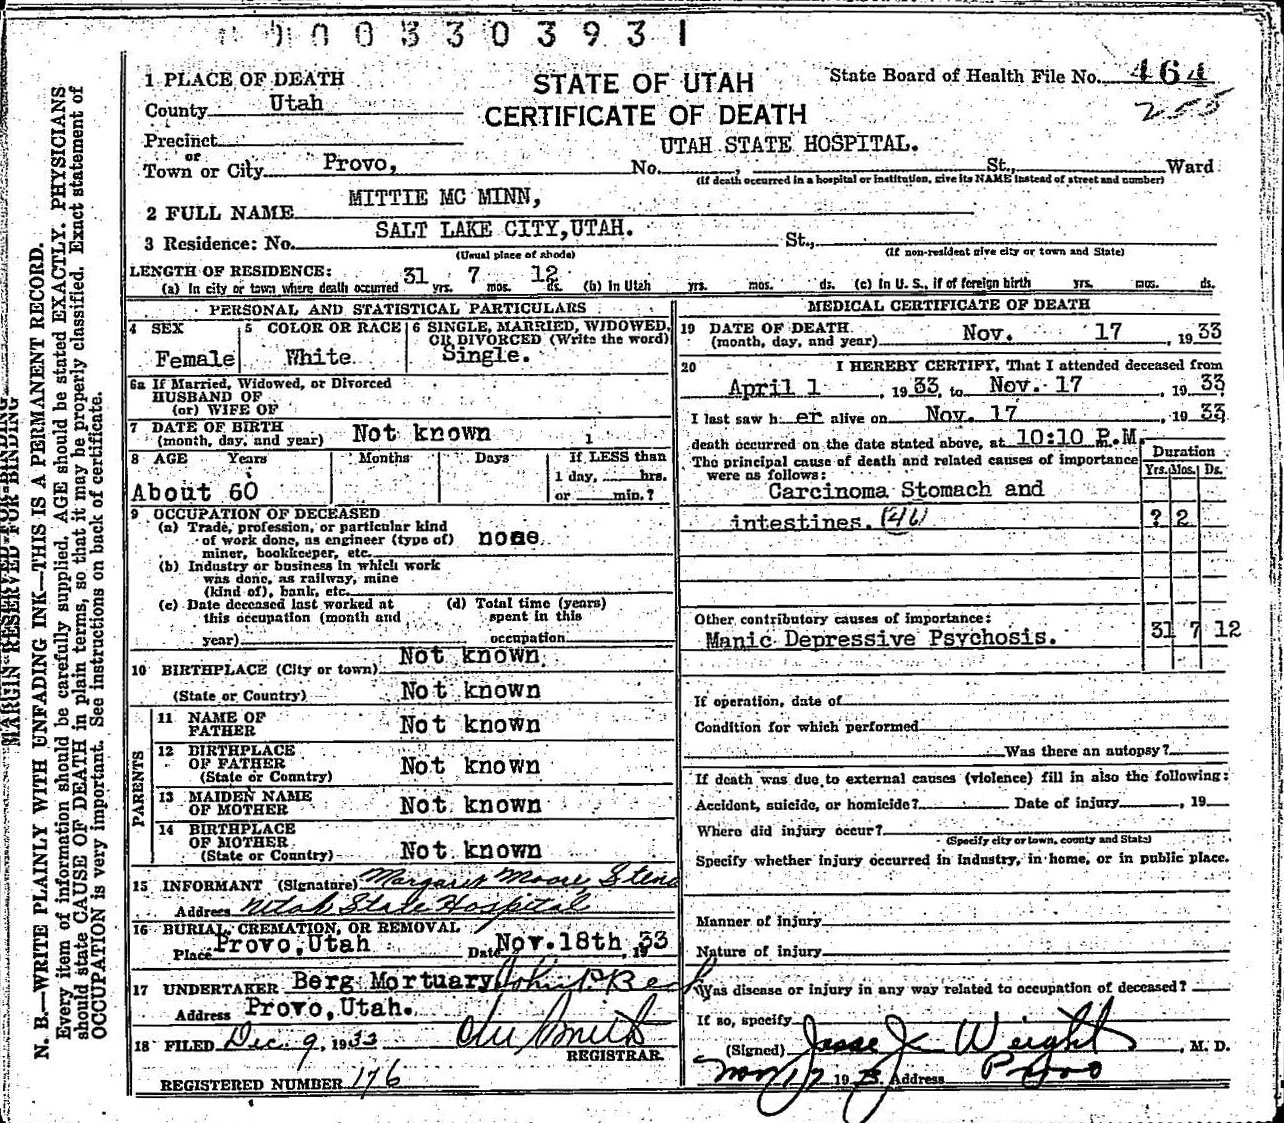 0003303931
1 PLACE OF DEATH
STATE OF UTAH
State Board of Health File No. 464
County Utah
CERTIFICATE OF DEATH
255
Precinct
UTAH STATE HOSPITAL.
or
Town or City Provo, No. St., Ward
(If death occurred in a hospital or institution, give its NAME instead of street and number)
2 FULL NAME MITTIE MC MINN,
3 Residence: No. SALT LAKE CITY, UTAH. St.,
(Usual place of abode) (If non-resident give city or town and State)
LENGTH OF RESIDENCE:
(a) In city or town where death occurred 31 yrs. 7 mos. 12 ds. (b) In Utah yrs. mos. ds. (c) In U. S., if of foreign birth yrs. mos. ds.
PERSONAL AND STATISTICAL PARTICULARS
4 SEX Female
5 COLOR OR RACE White
6 SINGLE, MARRIED, WIDOWED, OR DIVORCED (Write the word) Single.
6a If Married, Widowed, or Divorced
HUSBAND OF
(or) WIFE OF
7 DATE OF BIRTH
(month, day, and year) Not known
8 AGE Years Months Days If LESS than
1 day, hrs.
About 60 or min.?
9 OCCUPATION OF DECEASED
(a) Trade, profession, or particular kind
of work done, as engineer (type of) none.
miner, bookkeeper, etc.
(b) Industry or business in which work
was done, as railway, mine
(kind of), bank, etc.
(c) Date deceased last worked at
this occupation (month and
year)
(d) Total time (years)
spent in this
occupation
10 BIRTHPLACE (City or town) Not known
(State or Country) Not known
PARENTS
11 NAME OF
FATHER Not known
12 BIRTHPLACE
OF FATHER Not known
(State or Country)
13 MAIDEN NAME
OF MOTHER Not known
14 BIRTHPLACE
OF MOTHER Not known
(State or Country)
15 INFORMANT (Signature) Margaret Moore, Steno
Address Utah State Hospital
16 BURIAL, CREMATION, OR REMOVAL
Place Provo, Utah Date Nov. 18th, 1933
17 UNDERTAKER Berg Mortuary
Address Provo, Utah.
18 FILED Dec. 9, 1933
REGISTRAR.
REGISTERED NUMBER 176
MEDICAL CERTIFICATE OF DEATH
19 DATE OF DEATH
(month, day, and year) Nov. 17, 1933
20 I HEREBY CERTIFY, That I attended deceased from
April 1, 1933, to Nov. 17, 1933
I last saw her alive on Nov. 17, 1933
death occurred on the date stated above, at 10:10 P.M.
The principal cause of death and related causes of importance
were as follows:
Duration
Yrs. Mos. Ds.
Carcinoma Stomach and
intestines. (46) ? 2
Other contributory causes of importance:
Manic Depressive Psychosis. 31 7 12
If operation, date of
Condition for which performed
Was there an autopsy?
If death was due to external causes (violence) fill in also the following:
Accident, suicide, or homicide? Date of injury, 19
Where did injury occur?
(Specify city or town, county and State)
Specify whether injury occurred in industry, in home, or in public place.
Manner of injury
Nature of injury
Was disease or injury in any way related to occupation of deceased?
If so, specify
(Signed) Jesse J. Weight, M. D.
Nov 17 19 Address Provo
MARGIN RESERVED FOR BINDING
N. B.—WRITE PLAINLY WITH UNFADING INK—THIS IS A PERMANENT RECORD.
Every item of information should be carefully supplied. AGE should be stated EXACTLY. PHYSICIANS
should state CAUSE OF DEATH in plain terms, so that it may be properly classified. Exact statement of
OCCUPATION is very important. See instructions on back of certificate.